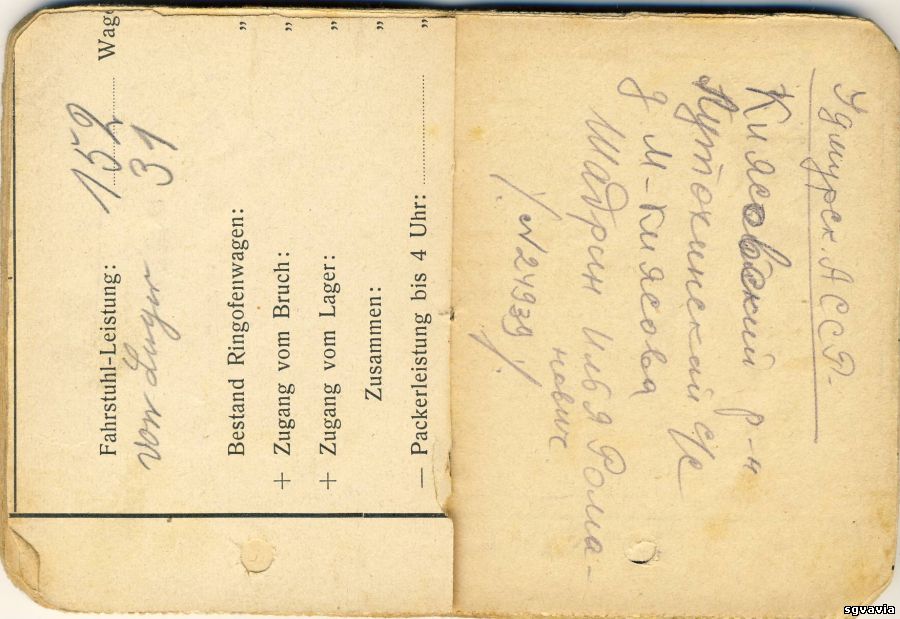 Fahrstuhl-Leistung: 152 Wagg
von Lager 31
Bestand Ringofenwagen: „
+ Zugang vom Bruch: „
+ Zugang vom Lager: „
Zusammen: „
— Packerleistung bis 4 Uhr: „
Удмурск. АССР-
Киясовский р-н
Лутохинский с/с
д М-Киясова
Шадрин Илья Рома-
нович
/№24939/
sgvavia